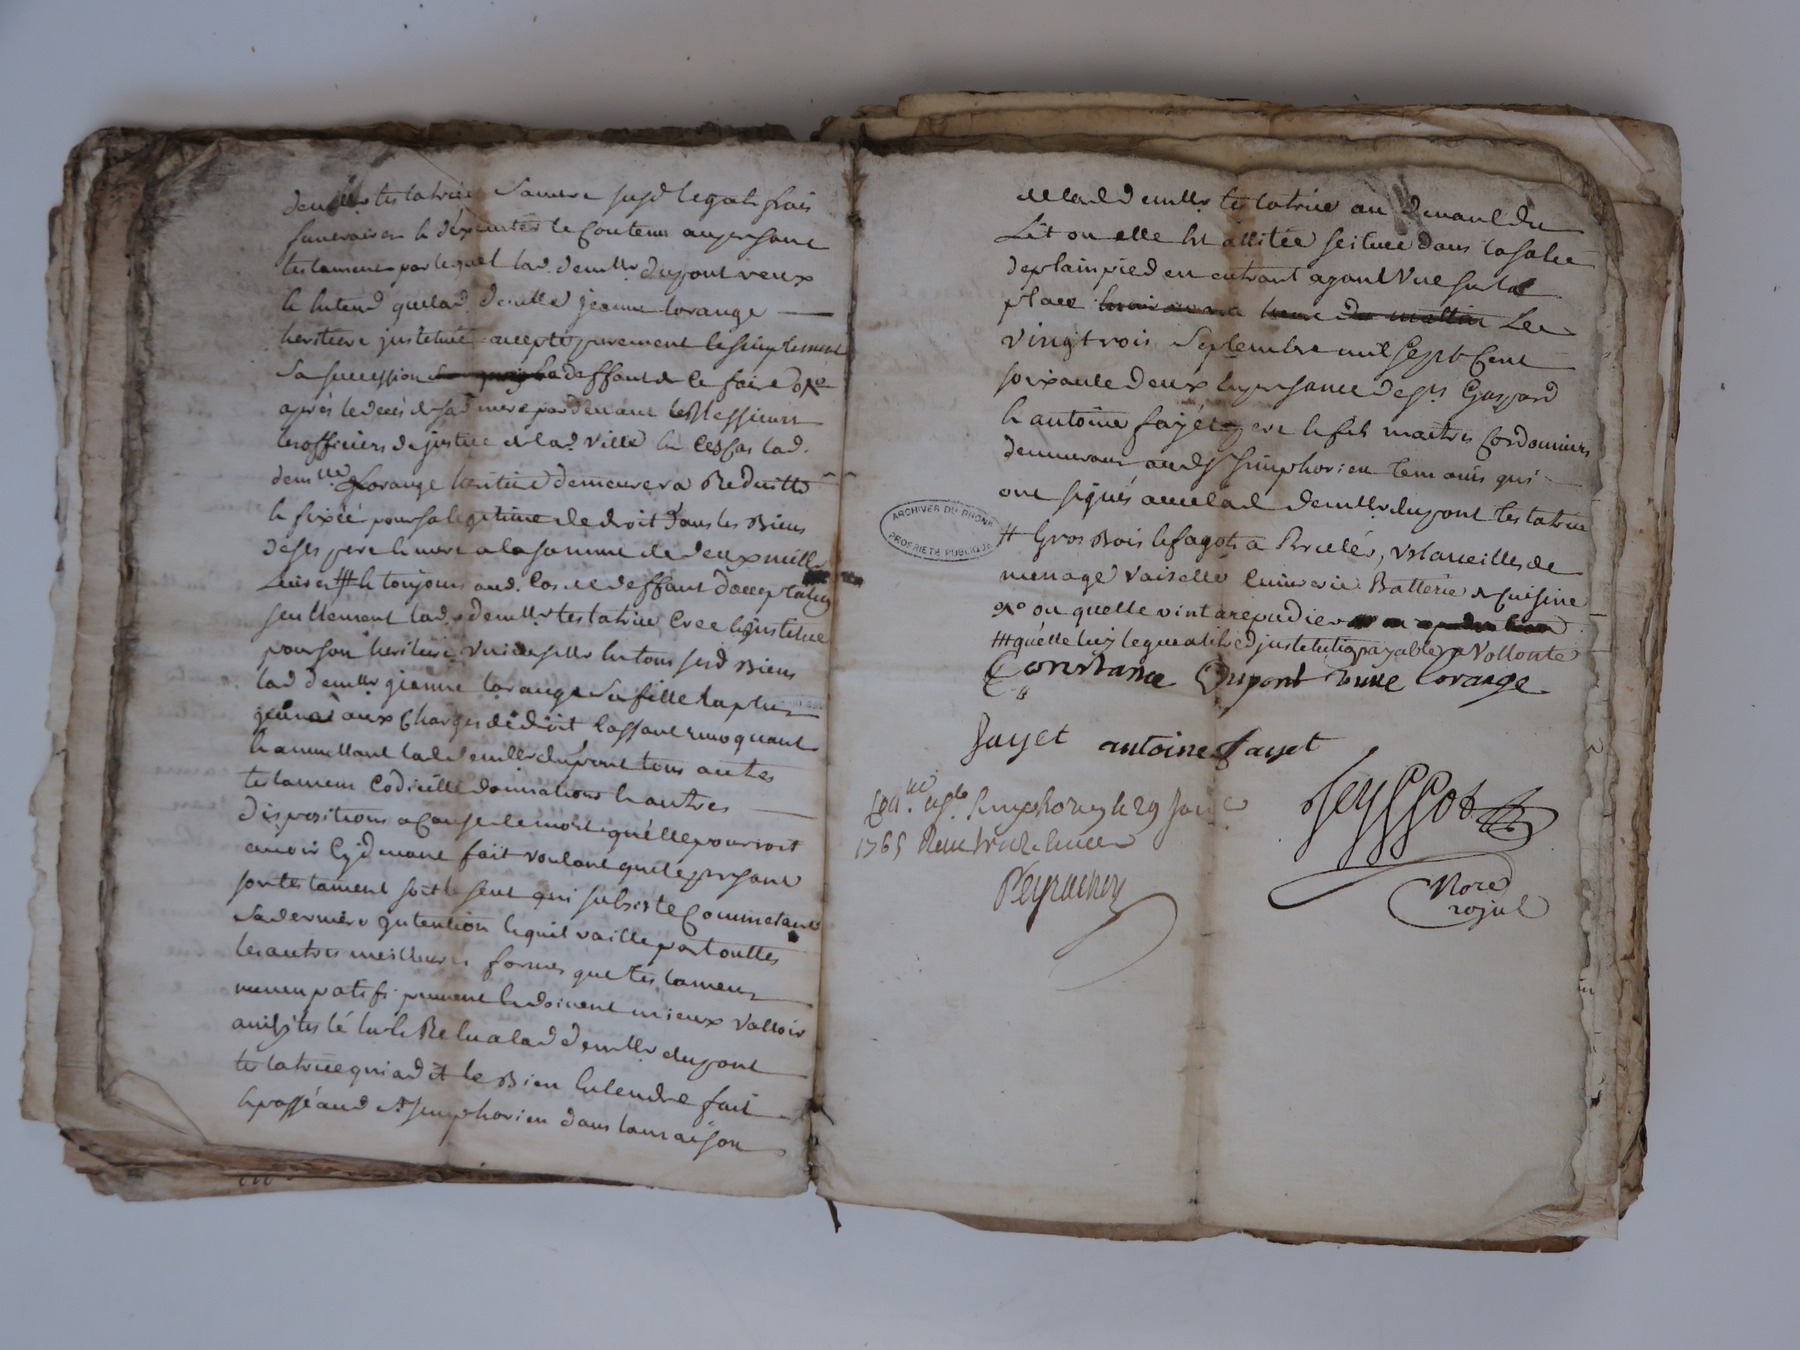 demlle testatrice sa mere susd legats frais
funeraires & dexecuter le Contenu au present
testament par lequel lad. demlle dupont veux
& entend que lad. demlle jeanne lorange
heritiere jnstituée accepte purement & simplement
sa succession deffaut de le faire
après le decés de sad mere pardevant les Messieurs
les officiers de justice de lad. ville En Ces Cas lad.
demlle Lorange heritiere demeurera Reduitte
& fixée pour sa legitime de droit dans les Biens
de ses pere & mere a la somme de deux mille
Livres # & toujours aud. Cas de deffaut d'acceptation
seullement lad. demlle testatrice Cree & jnstitue
pour son heritiere universelle En tous sesd Biens
lad demlle jeanne lorange sa fille la plus
jeune aux Charges de droit Cassant revoquant
& annullant lad. demlle dupont tous autres
testament Codicille donnations & autres
dispositions a Cause de mort qu'elle pourroit
avoir Cy devant fait voulant que le present
son testament soit le seul qui subsiste Comme etant
sa derniere jntention & quil vaille par touttes
les autres meilleures formes que testament
nuncupatif peuvent & doivent mieux valloir
ainsy testé lu & Relu a lad demlle dupont
testatrice qui a dit le Bien Entendre fait
& passé aud. st simphorien dans la maison
de lad. demlle testatrice au devant du
Lit ou elle Est allitée scituée dans la salle
de plain pied en entrant ayant Vue sur la
place Le
vingt trois Septembre mil Sept Cent
soixante deux En presence de srs Gaspard
& antoine fayet pere & fils maitres Cordonniers
demeurant aud. st simphorien temoins qui
ont signés avec lad. demlle dupont testatrice
# Gros Bois & fagots a Bruler, Ustancilles de
menage Vaisselle Cuivrerie Batterie de Cuisine
ou quelle vint a repudier
# quelle luy legue a titre d jnstitution payable a Vollonté
Constance Dupont veuve lorange
fayet antoine fayet
Conlle a st Simphorien le 29 janv
1765 Reçu treize livres
Peyssot
Peyrachon
Nore
royal
ARCHIVES DU RHONE
PROPRIETE PUBLIQUE